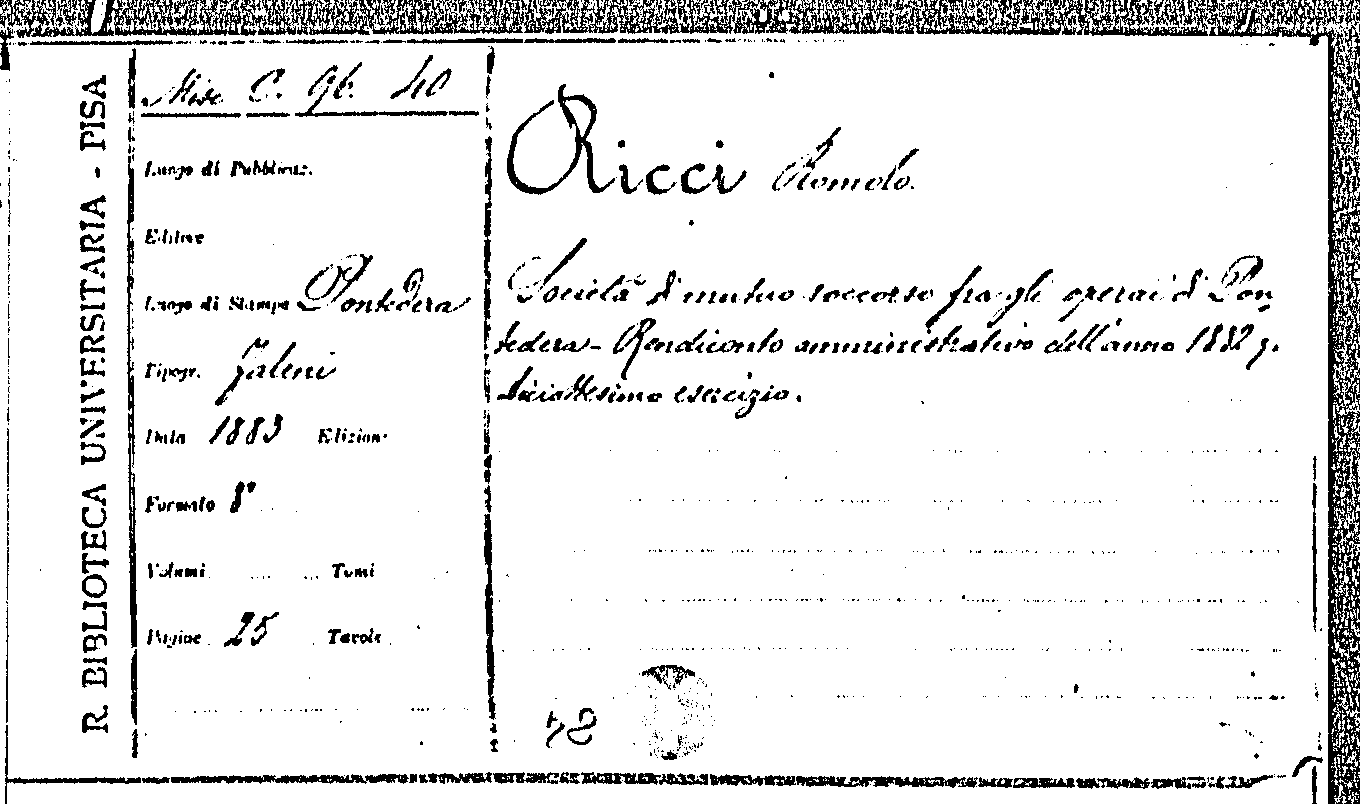 R. BIBLIOTECA UNIVERSITARIA - PISA
Misc C. 96. 40
Luogo di Pubblicaz.
Editore
Luogo di Stampa Pontedera
Tipogr.
Data 1883 Edizione
Formato 8°
Volumi Tomi
Pagine 25 Tavole
Ricci Romolo.
Società di mutuo soccorso fra gli operai di Pon
tedera - Rendiconto amministrativo dell'anno 1882
diciottesimo esercizio.
48